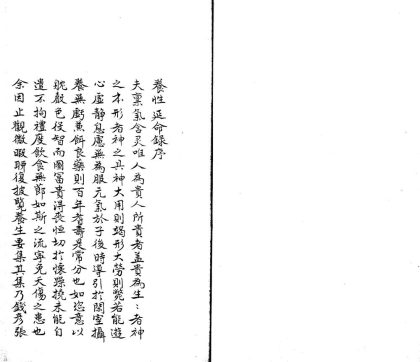 養性延命錄序
夫禀氣含灵唯人為貴人所貴者盖貴為生:者神
之本形者神之具神大用則竭形大勞則斃若能遊
心虛静息慮無為服元氣於子後時導引於閑室攝
養無虧兼餌良藥則百年耆壽是常分也如恣意以
耽聲色役智而圖冨貴得丧恒切扵懷躁撓未能自
遣不拘禮度飲食無節如斯之流寧免夭傷之患也
余因止觀微暇聊復披覽養生要集其集乃錢彦張